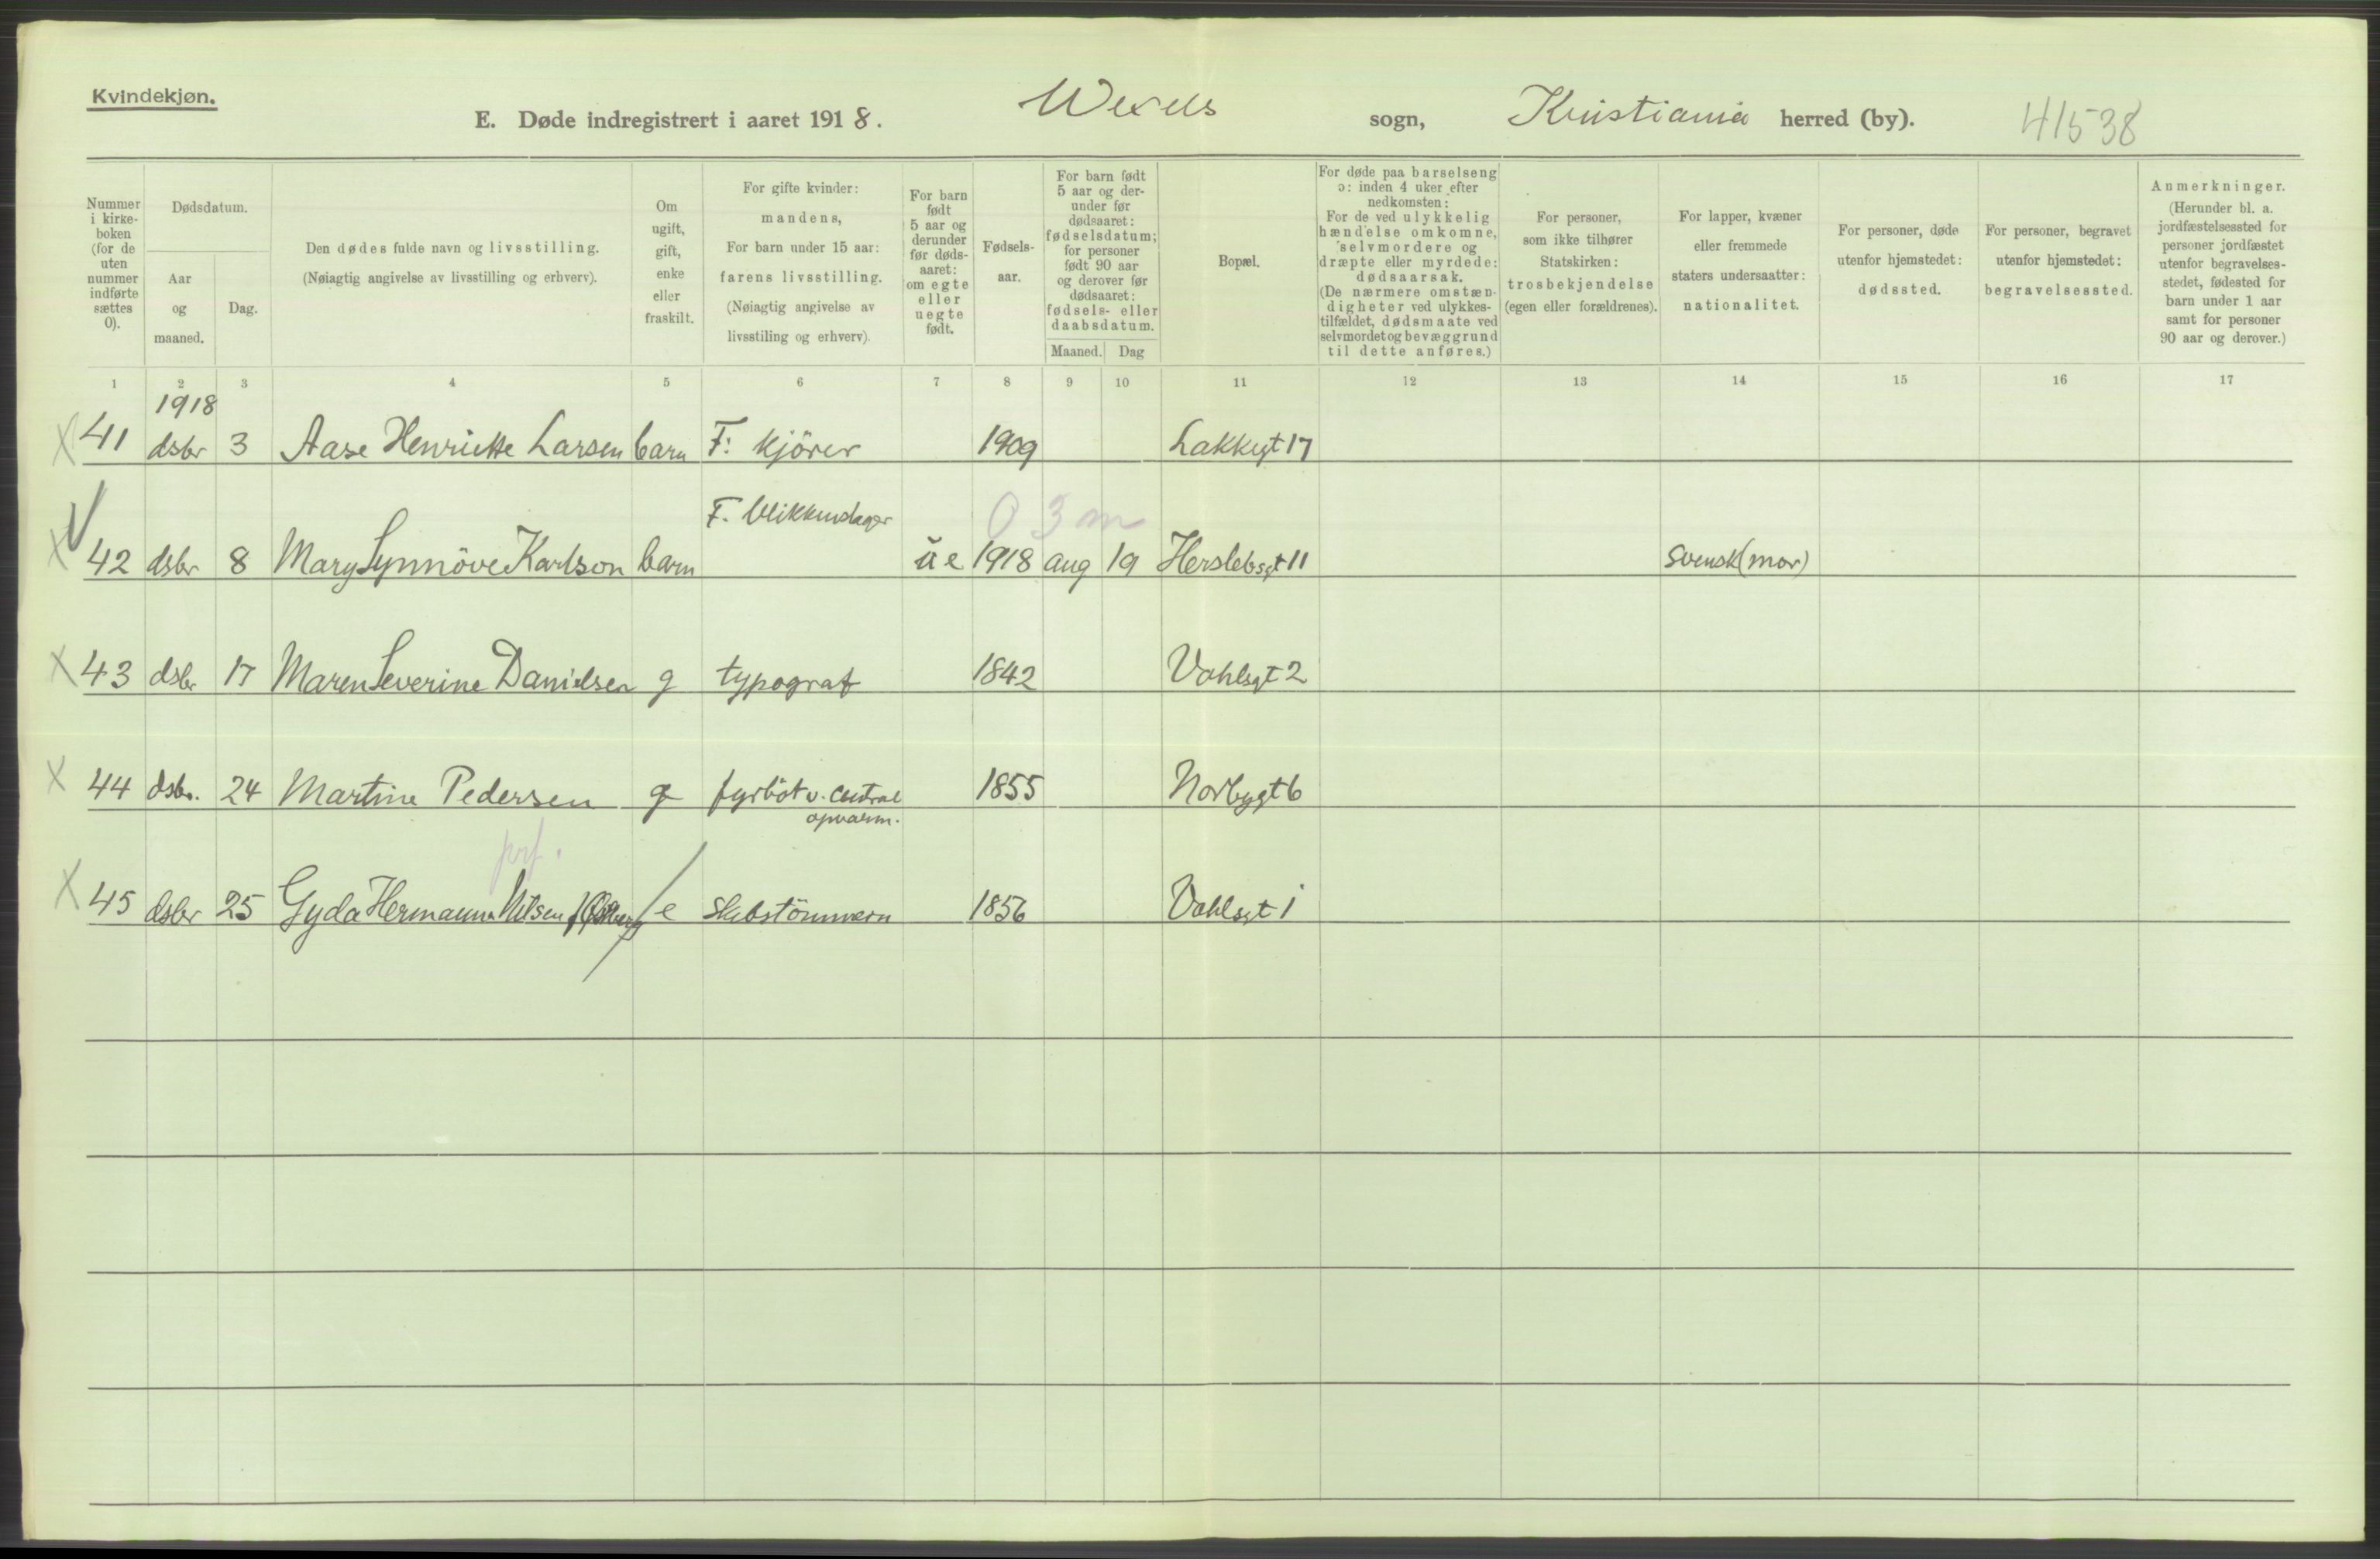 Kvindekjøn.
E. Døde indregistrert i aaret 1918. Wexels sogn, Kristiania herred (by). 41538
Nummer i kirke- boken (for de uten nummer indførte sættes 0).
Dødsdatum.
Aar og maaned.
Dag.
Den dødes fulde navn og livsstilling.
(Nøiagtig angivelse av livsstilling og erhverv).
Om ugift, gift, enke eller fraskilt.
For gifte kvinder: mandens,
For barn under 15 aar: farens livsstilling.
(Nøiagtig angivelse av livsstiling og erhverv).
For barn født 5 aar og derunder før døds- aaret: om egte eller uegte født.
Fødsels- aar.
For barn født 5 aar og der- under før dødsaaret: fødselsdatum; for personer født 90 aar og derover før dødsaaret: fødsels- eller daabsdatum.
Maaned. Dag
Bopæl.
For døde paa barselseng ɔ: inden 4 uker efter nedkomsten:
For de ved ulykkelig hændelse omkomne, selvmordere og dræpte eller myrdede: dødsaarsak.
(De nærmere omstæn- digheter ved ulykkes- tilfældet, dødsmaate ved selvmordet og bevæggrund til dette anføres.)
For personer, som ikke tilhører Statskirken: trosbekjendelse (egen eller forældrenes).
For lapper, kvæner eller fremmede staters undersaatter: nationalitet.
For personer, døde utenfor hjemstedet: dødssted.
For personer, begravet utenfor hjemstedet: begravelsessted.
Anmerkninger.
(Herunder bl. a. jordfæstelsessted for personer jordfæstet utenfor begravelses- stedet, fødested for barn under 1 aar samt for personer 90 aar og derover.)
1 2 3 4 5 6 7 8 9 10 11 12 13 14 15 16 17
1918
41 dsbr 3 Aase Henriette Larsen barn F: kjörer 1909 Lakkegt 17
F. blikkenslager 0 3 m
42 dsbr 8 Mary Synnöve Karlson barn ue 1918 aug 19 Herslebsgt 11 svensk (mor)
43 dsbr 17 Maren Severine Danielsen g typograf 1842 Vahlsgt 2
44 dsbr. 24 Martine Pedersen g fyrböt v. central 1855 Norbygt 6
opvarm.
45 dsbr 25 Gyda Hermanna Nilsen e skibstömmerm 1856 Vahlsgt 1